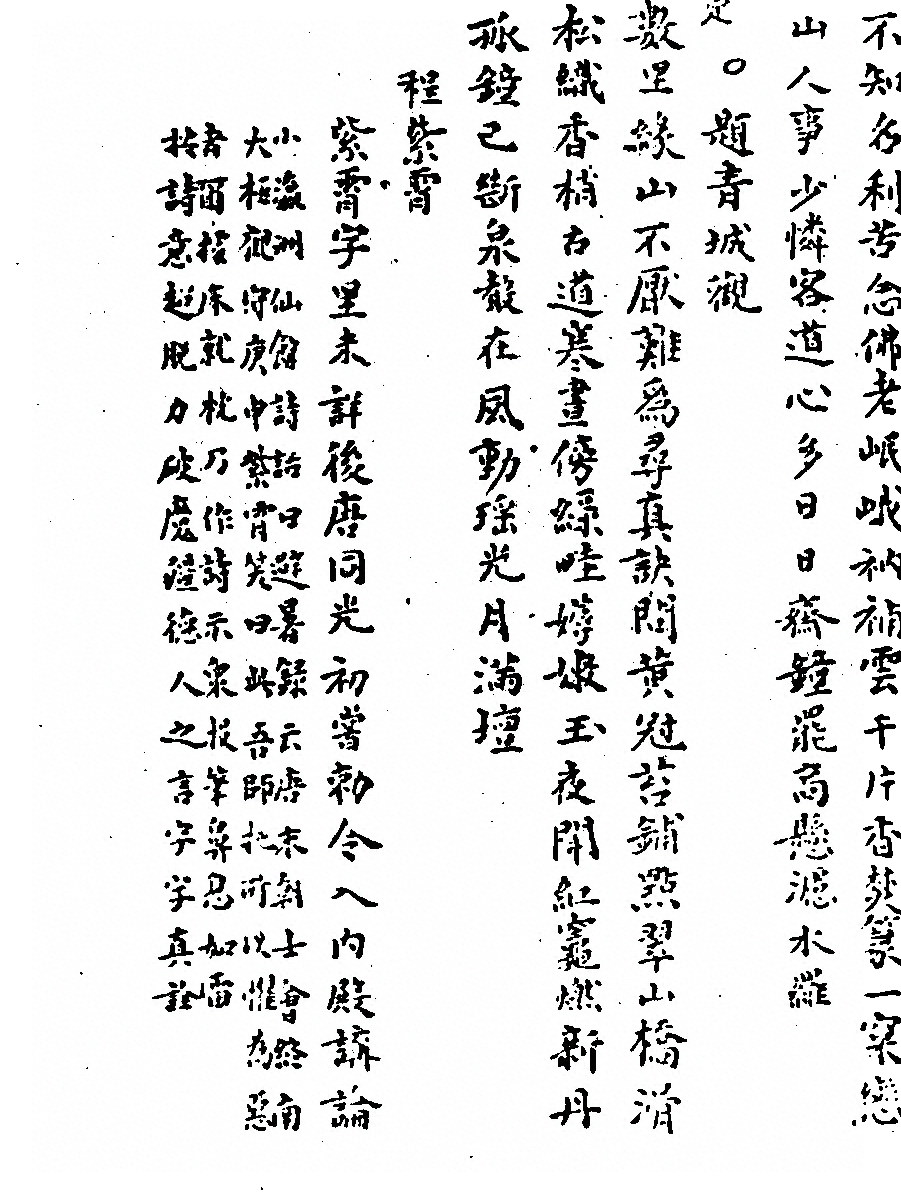 不知名利苦念佛老岷峨衲補雲千片香焚篆一窠戀
山人事少憐客道心多日日齋鐘罷高懸濾水羅
定
○題青城觀
數里緣山不厭難為尋真訣問黃冠苔鋪點翠山橋滑
松織香梢古道寒晝傍綠畦薅嫩玉夜開紅竈撚新丹
孤鐘已斷泉聲在風動瑤光月滿壇
程紫霄
紫霄字里未詳後唐同光初嘗勅令入內殿講論
小瀛洲仙館詩話曰避暑錄云唐末朝士會終南
太極觀守庚申紫霄笑曰此吾師託所以惟為惡
者爾據床就枕乃作詩示衆投筆鼻息如雷
按詩意超脫力破魔鐘德人之言字字真詮